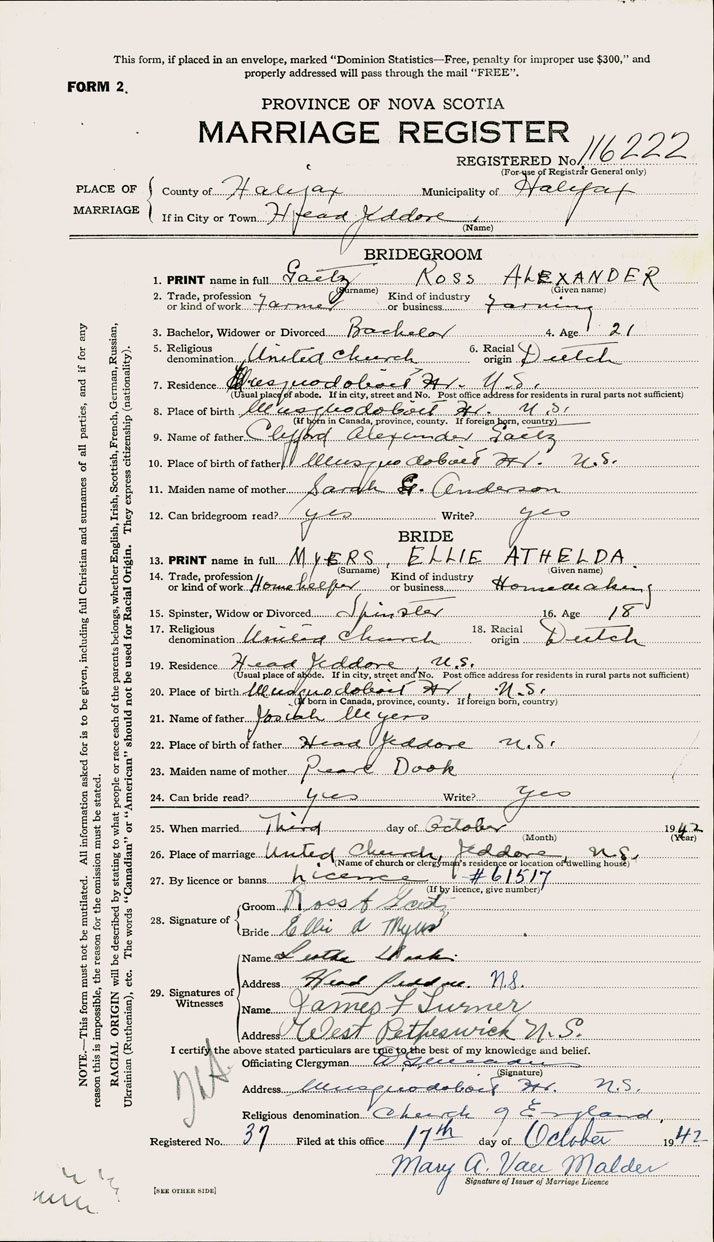 This form, if placed in an envelope, marked "Dominion Statistics—Free, penalty for improper use $300," and
properly addressed will pass through the mail "FREE".
FORM 2.
PROVINCE OF NOVA SCOTIA
MARRIAGE REGISTER
REGISTERED No. 116222
(For use of Registrar General only)
PLACE OF MARRIAGE
County of Halifax Municipality of Halifax
If in City or Town Head Jeddore
(Name)
BRIDEGROOM
1. PRINT name in full Gaetz ROSS ALEXANDER
(Surname) (Given name)
2. Trade, profession or kind of work Farmer Kind of industry or business Farming
3. Bachelor, Widower or Divorced Bachelor 4. Age 21
5. Religious denomination United Church 6. Racial origin Dutch
7. Residence Musquodoboit Hr. N.S.
(Usual place of abode. If in city, street and No. Post office address for residents in rural parts not sufficient)
8. Place of birth Musquodoboit Hr. N.S.
(If born in Canada, province, county. If foreign born, country)
9. Name of father Clifford Alexander Gaetz
10. Place of birth of father Musquodoboit Hr. N.S.
11. Maiden name of mother Sarah G. Anderson
12. Can bridegroom read? yes Write? yes
BRIDE
13. PRINT name in full MYERS, ELLIE ATHELDA
(Surname) (Given name)
14. Trade, profession or kind of work Homehelper Kind of industry or business Homemaking
15. Spinster, Widow or Divorced Spinster 16. Age 18
17. Religious denomination United Church 18. Racial origin Dutch
19. Residence Head Jeddore, N.S.
(Usual place of abode. If in city, street and No. Post office address for residents in rural parts not sufficient)
20. Place of birth Musquodoboit Hr, N.S.
(If born in Canada, province, county. If foreign born, country)
21. Name of father Josiah Myers
22. Place of birth of father Head Jeddore N.S.
23. Maiden name of mother Pearl Dook
24. Can bride read? yes Write? yes
25. When married Third day of October 1942
(Month) (Year)
26. Place of marriage United Church, Jeddore, N.S.
(Name of church or clergyman's residence or location of dwelling house)
27. By licence or banns Licence #61517
(If by licence, give number)
28. Signature of
Groom Ross A Gaetz
Bride Ellie A Myers
29. Signatures of Witnesses
Name
Address Head Jeddore. N.S.
Name James F Turner
Address West Petpeswick N.S.
I certify the above stated particulars are true to the best of my knowledge and belief.
Officiating Clergyman
(Signature)
Address Musquodoboit Hr. N.S.
Religious denomination Church of England
Registered No. 37 Filed at this office 17th day of October 1942
Mary A. Van Malder
Signature of Issuer of Marriage Licence
[SEE OTHER SIDE]
NOTE.—This form must not be mutilated. All information asked for is to be given, including full Christian and surnames of all parties, and if for any
reason this is impossible, the reason for the omission must be stated.
RACIAL ORIGIN will be described by stating to what people or race each of the parents belongs, whether English, Irish, Scottish, French, German, Russian,
Ukrainian (Ruthenian), etc. The words "Canadian" or "American" should not be used for Racial Origin. They express citizenship (nationality).